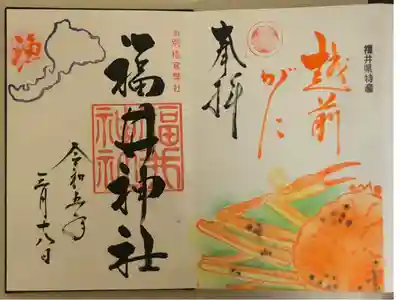 福井県特産
越前
がに
奉拝
別格官幣社
福井神社
福井
神社
令和五年
三月十八日